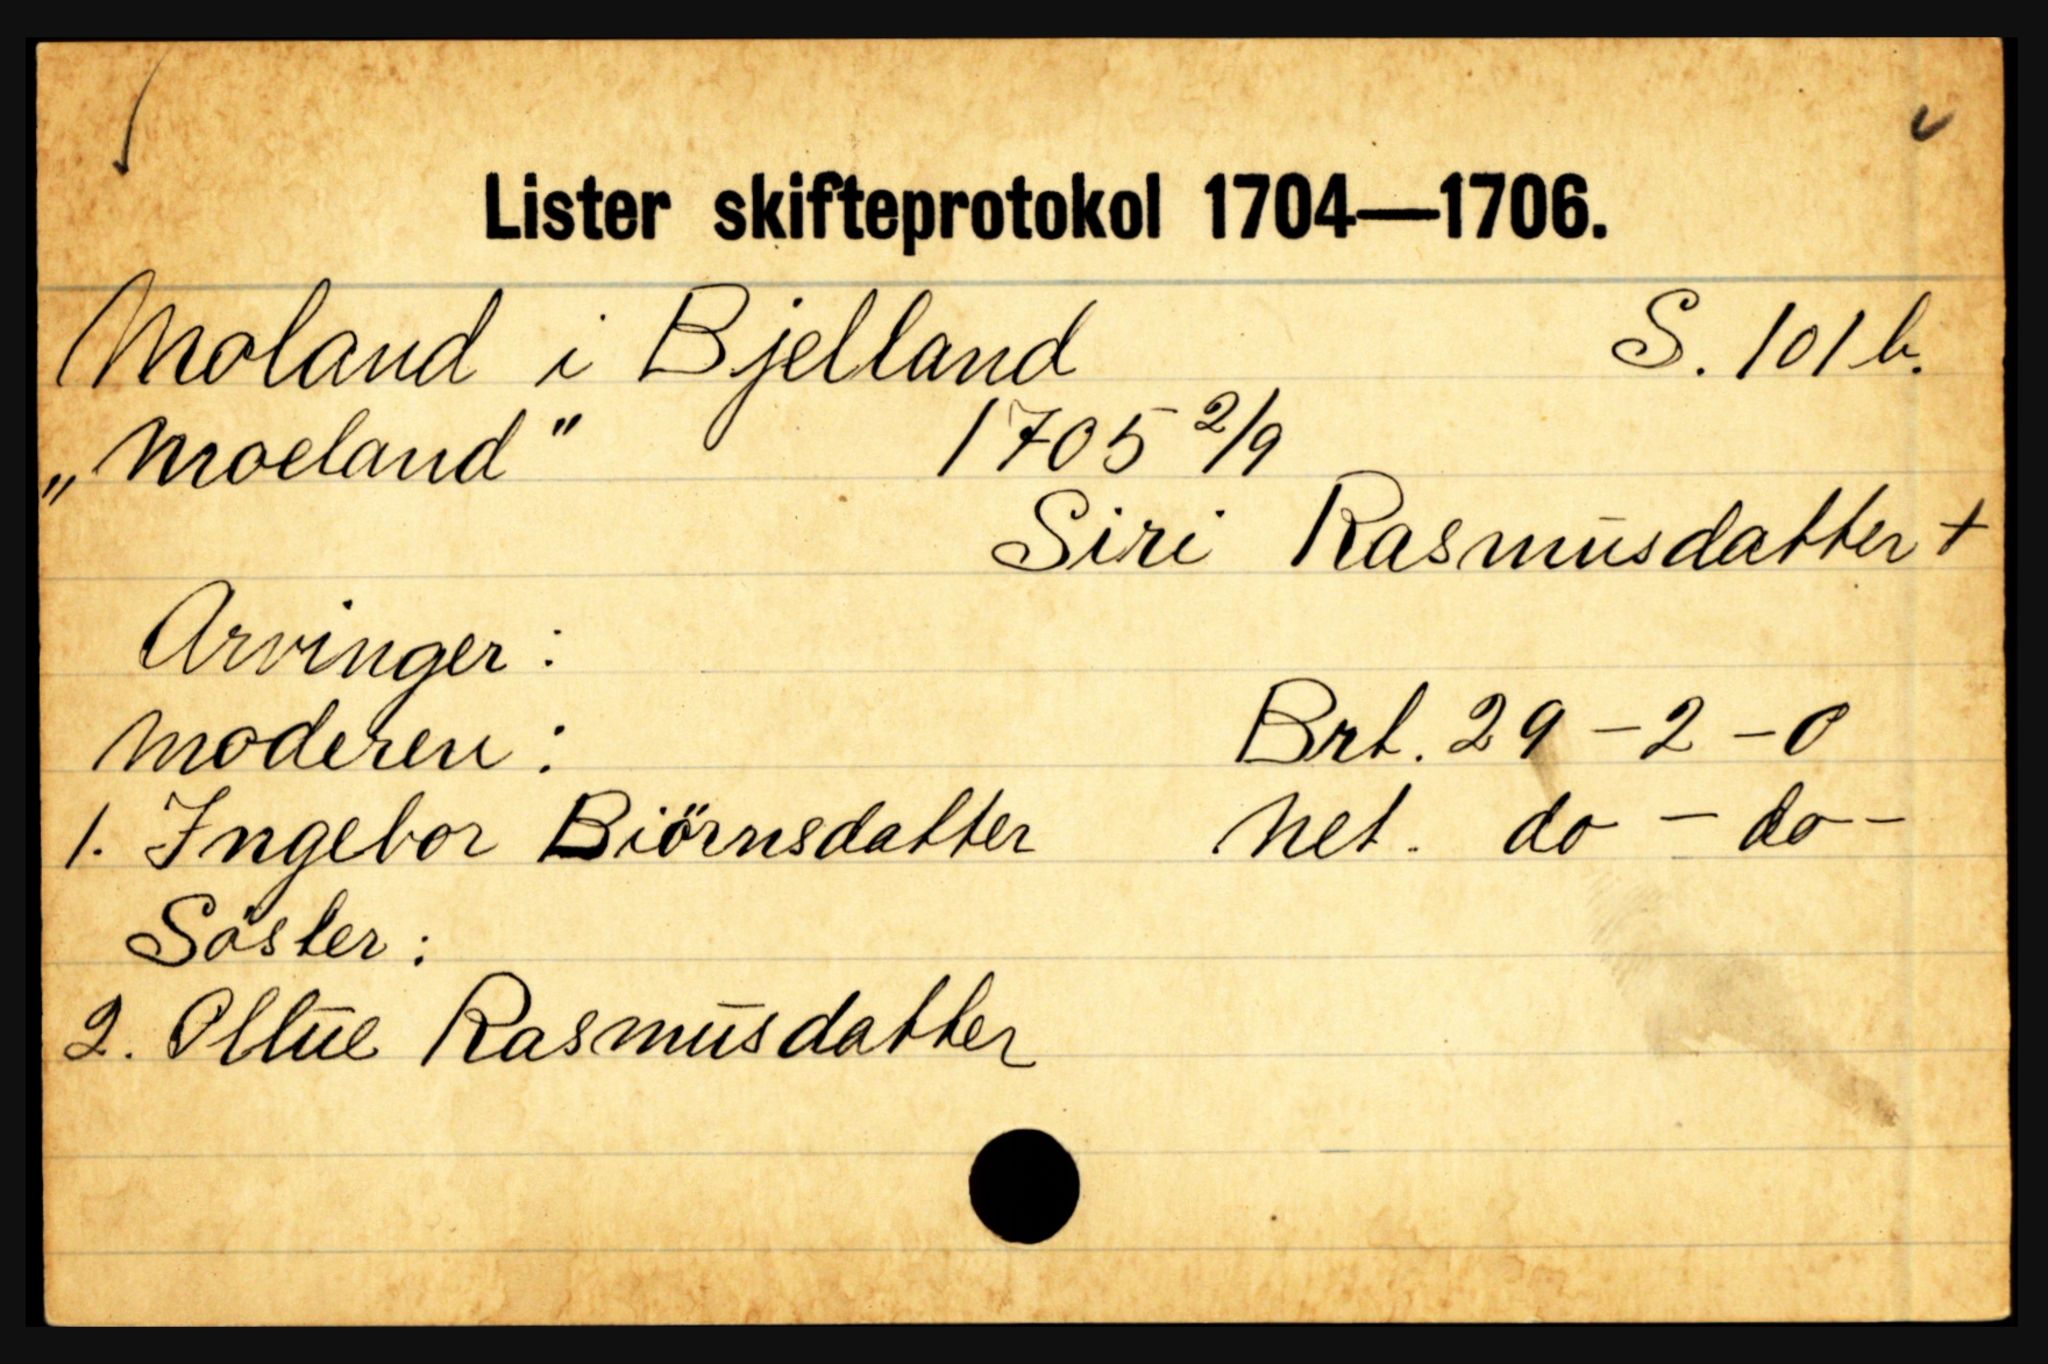 Lister skifteprotokol 1704—1706.
Moland i Bjelland S. 101 b.
„Moeland" 1705 2/9
Siri Rasmusdatter +
Arvinger:
Moderen: Brt. 29-2-0
1. Ingebor Biörnsdatter Net. do - do -
Söster:
2. Oltue Rasmusdatter